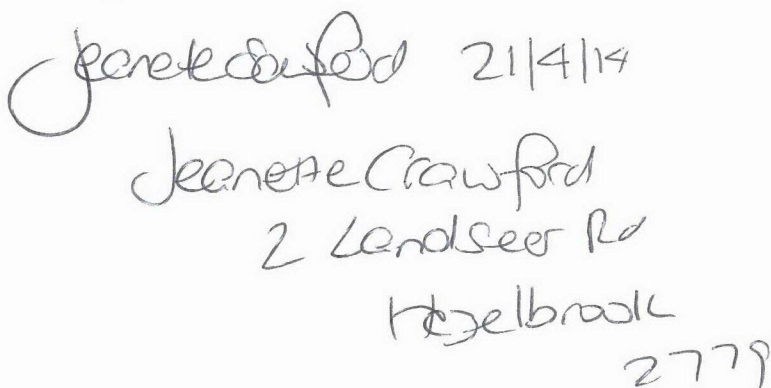 Jeanette Crawford 21/4/14
Jeanette Crawford
2 Landseer Rd
Hazelbrook
2779